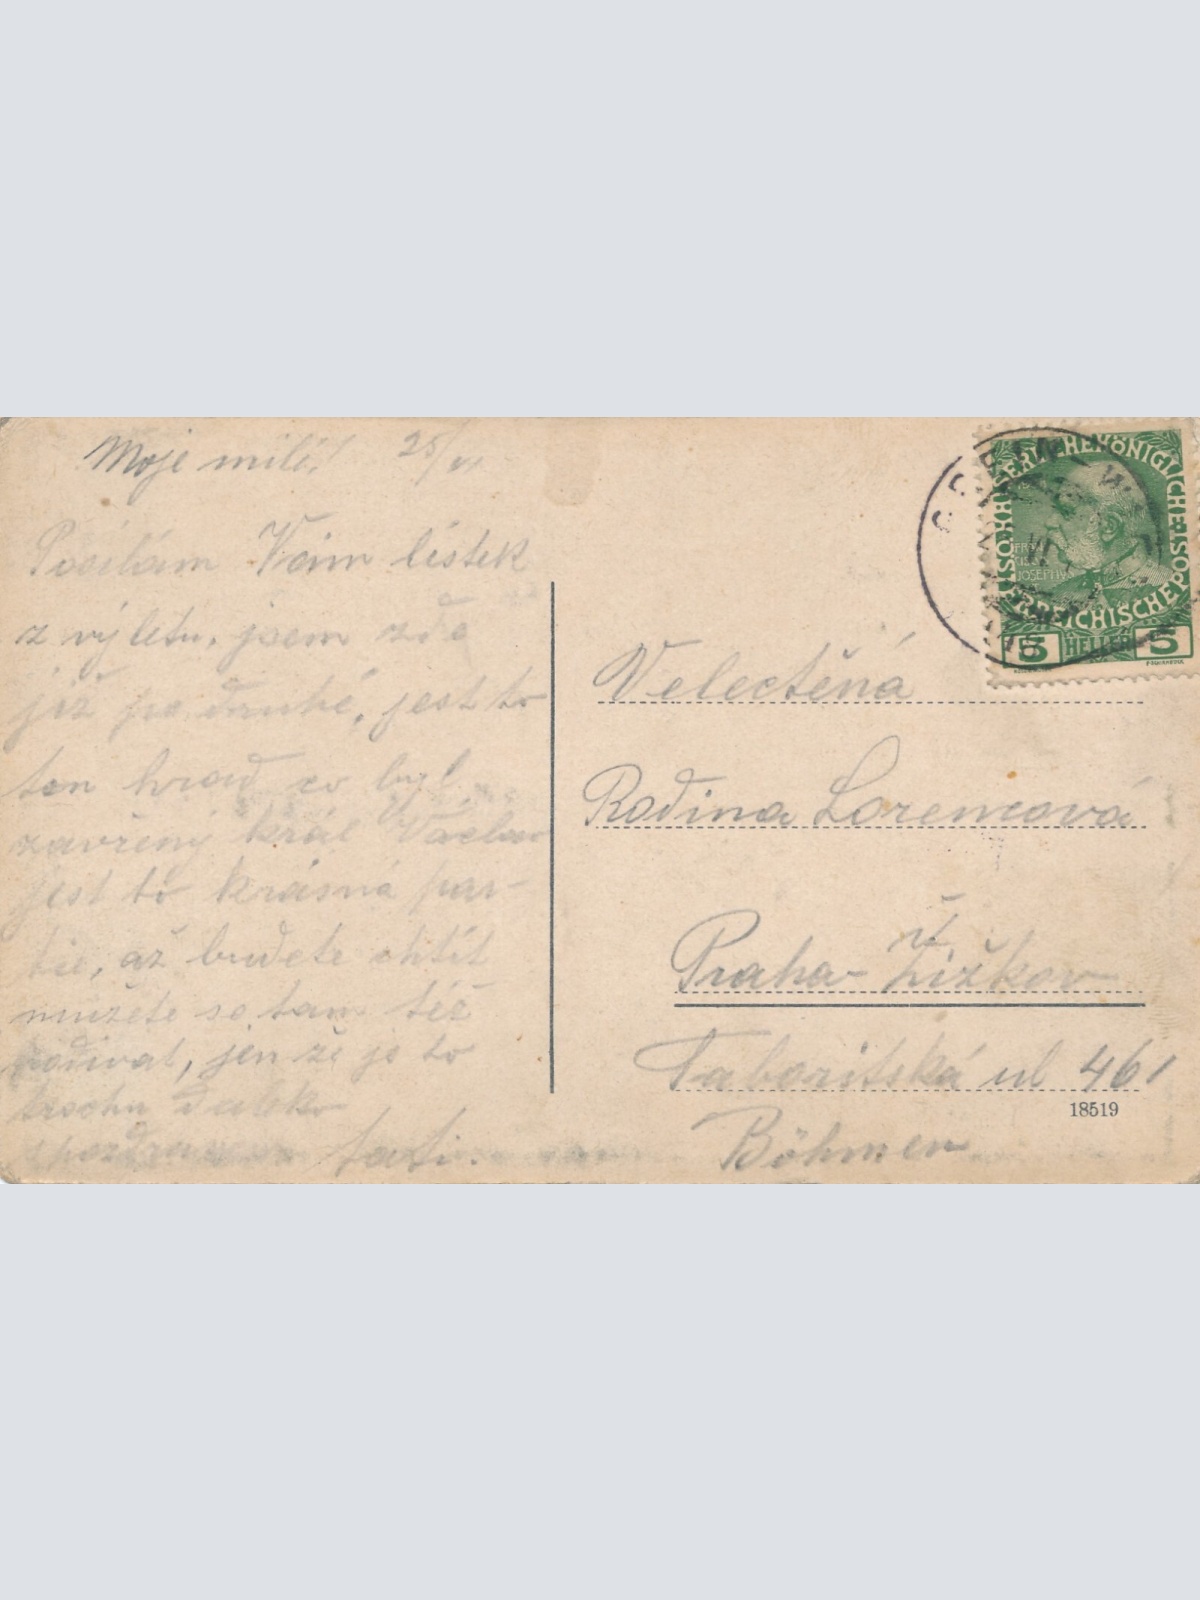 Moje milí! 25/VI
Posílám Vám lístek
z výletu, jsem zde
již po druhé, jest to
ten hrad co byl
zavřený král Václav
jest to krásná par-
tie, až budete chtít
mužete se tam též
podívat, jen že je to
trochu daleko
pozdrav tati.
KAISERLICHE KÖNIGLICHE ÖSTERREICHISCHE POST
FRANZ JOSEPH I
5 HELLER 5
Velectěná
Rodina Lorencová
Praha-Žižkov
Taboritská ul 461
18519
Böhmen